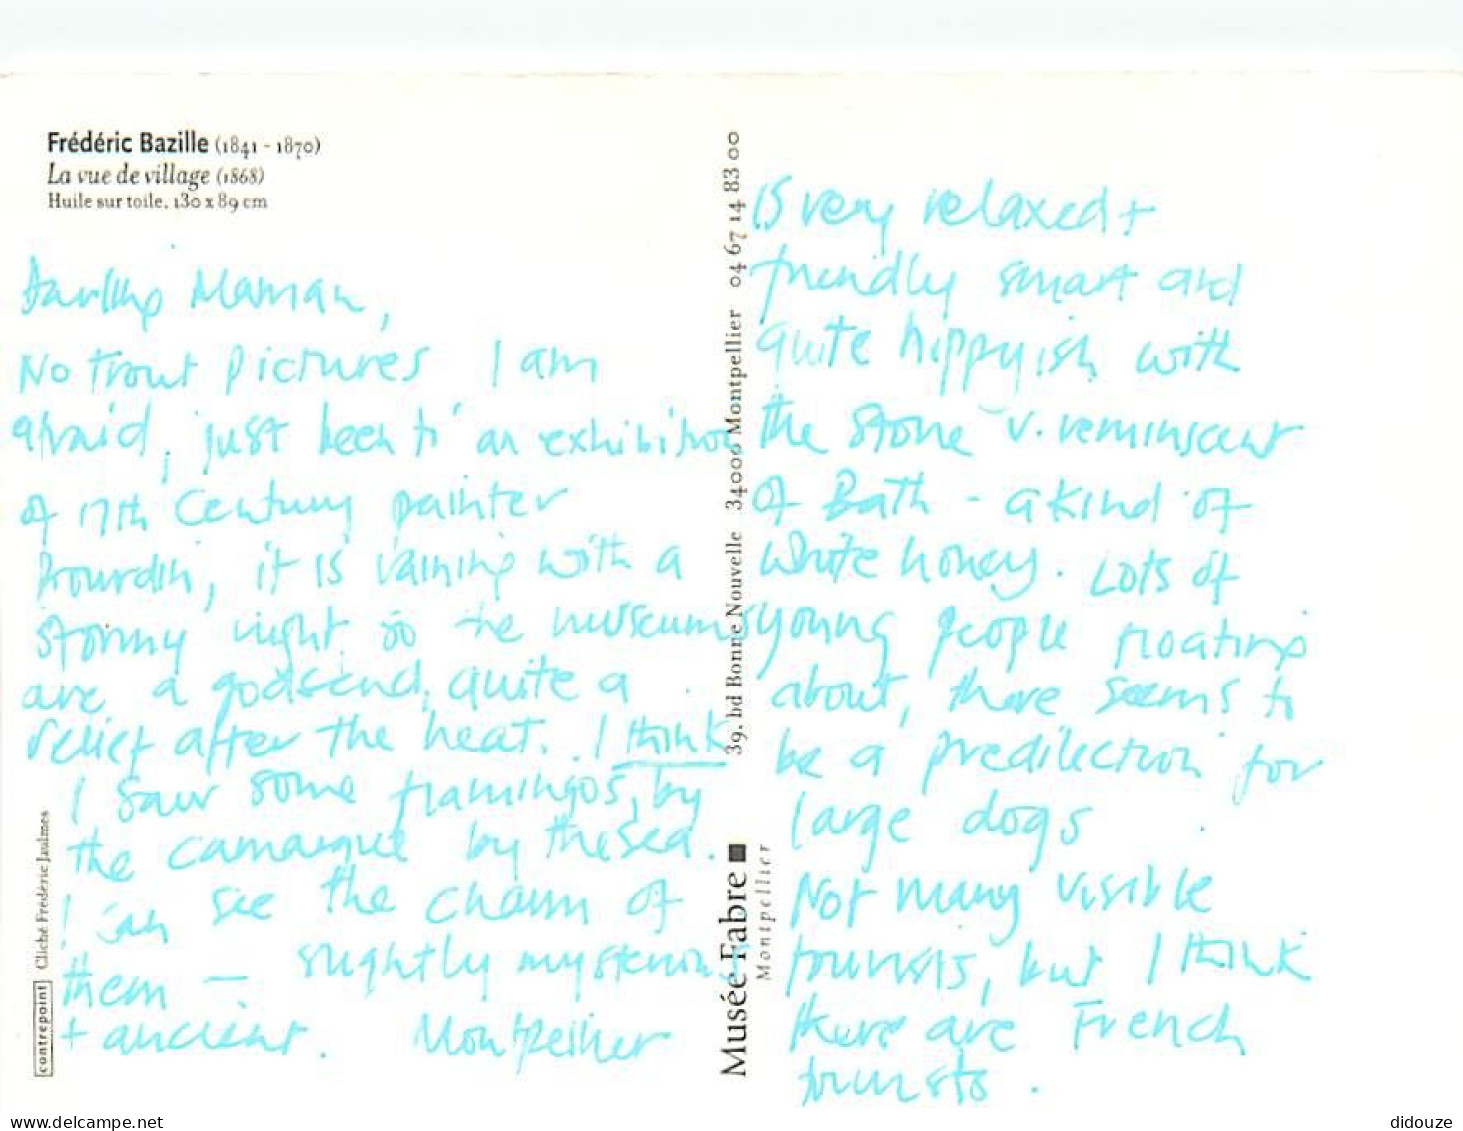 Frédéric Bazille (1841 - 1870)
La vue de village (1868)
Huile sur toile, 130 x 89 cm
Darling Maman,
No trout pictures I am
afraid, just been to an exhibition
of 17th Century painter
Bourdin, it is raining with a
stormy night so the museums
are a godsend, quite a
relief after the heat. I think
I saw some flamingos, by
the camargue by the sea.
I can see the charm of
them — slightly mysterious
+ ancient. Montpellier
is very relaxed +
friendly smart and
quite hippyish with
the stone v. reminiscent
of Bath - a kind of
white honey. Lots of
young people floating
about, there seems to
be a predilection for
large dogs
Not many visible
tourists, but I think
there are French
tourists.
39, bd Bonne Nouvelle 34000 Montpellier 04 67 14 83 00
Musée Fabre
Montpellier
contrepoint Cliché Frédéric Jaulmes
delcampe.net
didouze